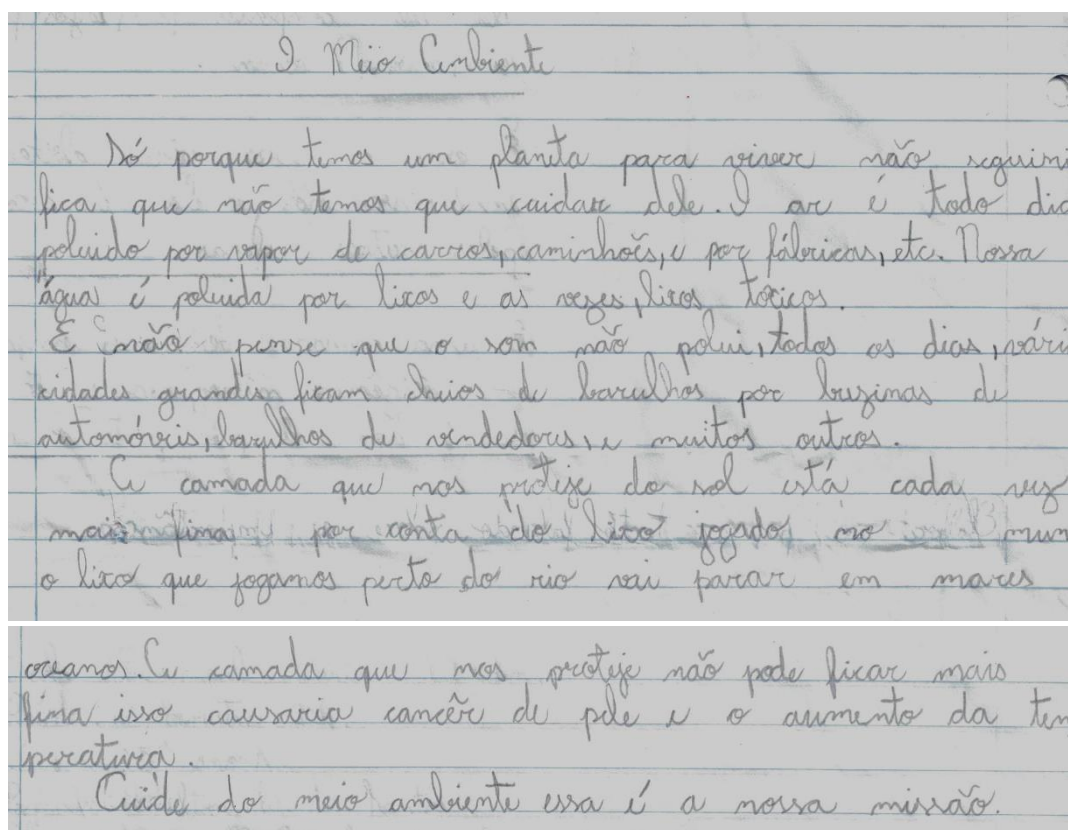 O Meio Ambiente
Só porque temos um planeta para viver não seguini
fica que não temos que cuidar dele. O ar é todo dia
poluido por vapor de carros, caminhões, e por fábricas, etc. Nossa
água é poluida por lixos e as vezes, lixos tóxicos.
E não pense que o som não polui, todos os dias, vári
cidades grandes ficam cheios de barulhos por buzinas de
automóveis, barulhos de vendedores, e muitos outros.
A camada que nos proteje do sol está cada vez
mais fina por conta do lixo jogado no mun
o lixo que jogamos perto do rio vai parar em mares
oceanos. A camada que nos proteje não pode ficar mais
fina isso causaria cancêr de pele e o aumento da tem
peratura.
Cuide do meio ambiente essa é a nossa missão.